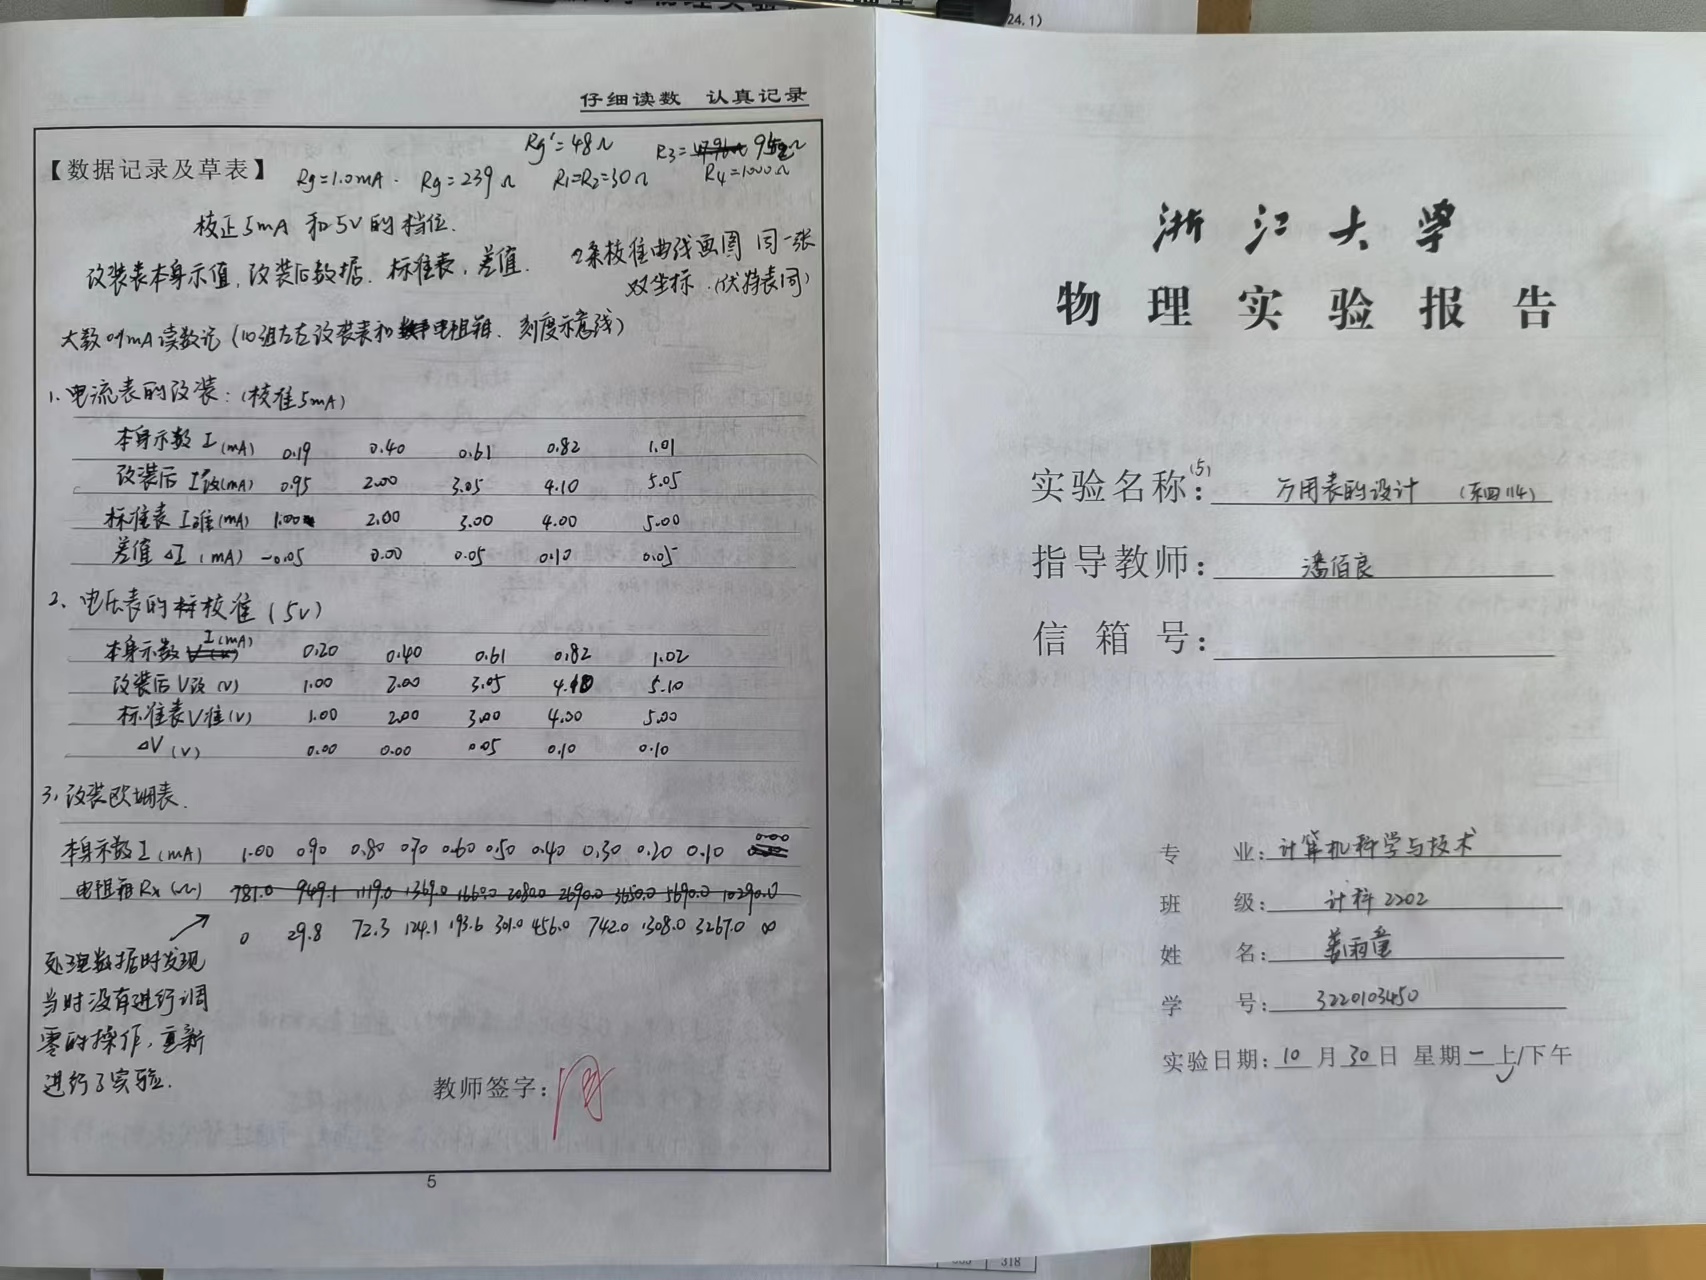 24.1)
仔细读数 认真记录
【数据记录及草表】
Rg'=48Ω
R3= 952Ω
Rg=1.0mA. Rg=239Ω R1=R2=30Ω R4=1000Ω
校正5mA 和5V的档位.
改装表本身示值,改装后数据.标准表,差值.
2条校准曲线画图 同一张
双坐标.(伏特表同)
(10组左右改装表和电阻箱.刻度示意线)
1.电流表的改装:(校准5mA)
本身示数 I(mA) 0.19 0.40 0.61 0.82 1.01
改装后 I改(mA) 0.95 2.00 3.05 4.10 5.05
标准表 I准(mA) 1.00 2.00 3.00 4.00 5.00
差值 ΔI (mA) -0.05 0.00 0.05 0.10 0.05
2、电压表的校准(5V)
本身示数 I(mA) 0.20 0.40 0.61 0.82 1.02
改装后V改(V) 1.00 2.00 3.05 4.10 5.10
标准表V准(V) 1.00 2.00 3.00 4.00 5.00
ΔV (V) 0.00 0.00 0.05 0.10 0.10
3、改装欧姆表.
本身示数I(mA) 1.00 0.90 0.80 0.70 0.60 0.50 0.40 0.30 0.20 0.10 0.00
电阻箱Rx(Ω) 781.0 949.1 1119.0 1369.0 1660.0 2080.0 2690.0 3650.0 5690.0 10290.0
0 29.8 72.3 124.1 193.6 301.0 456.0 742.0 1308.0 3267.0 ∞
处理数据时发现
当时没有进行调
零的操作,重新
进行了实验.
教师签字:
5
浙江大学
物理实验报告
实验名称:(5) 万用表的设计 (东四114)
指导教师: 潘佰良
信箱号:
专 业: 计算机科学与技术
班 级: 计科2202
姓 名: 姜雨童
学 号: 3220103450
实验日期: 10 月 30 日 星期 一 上/下午
318